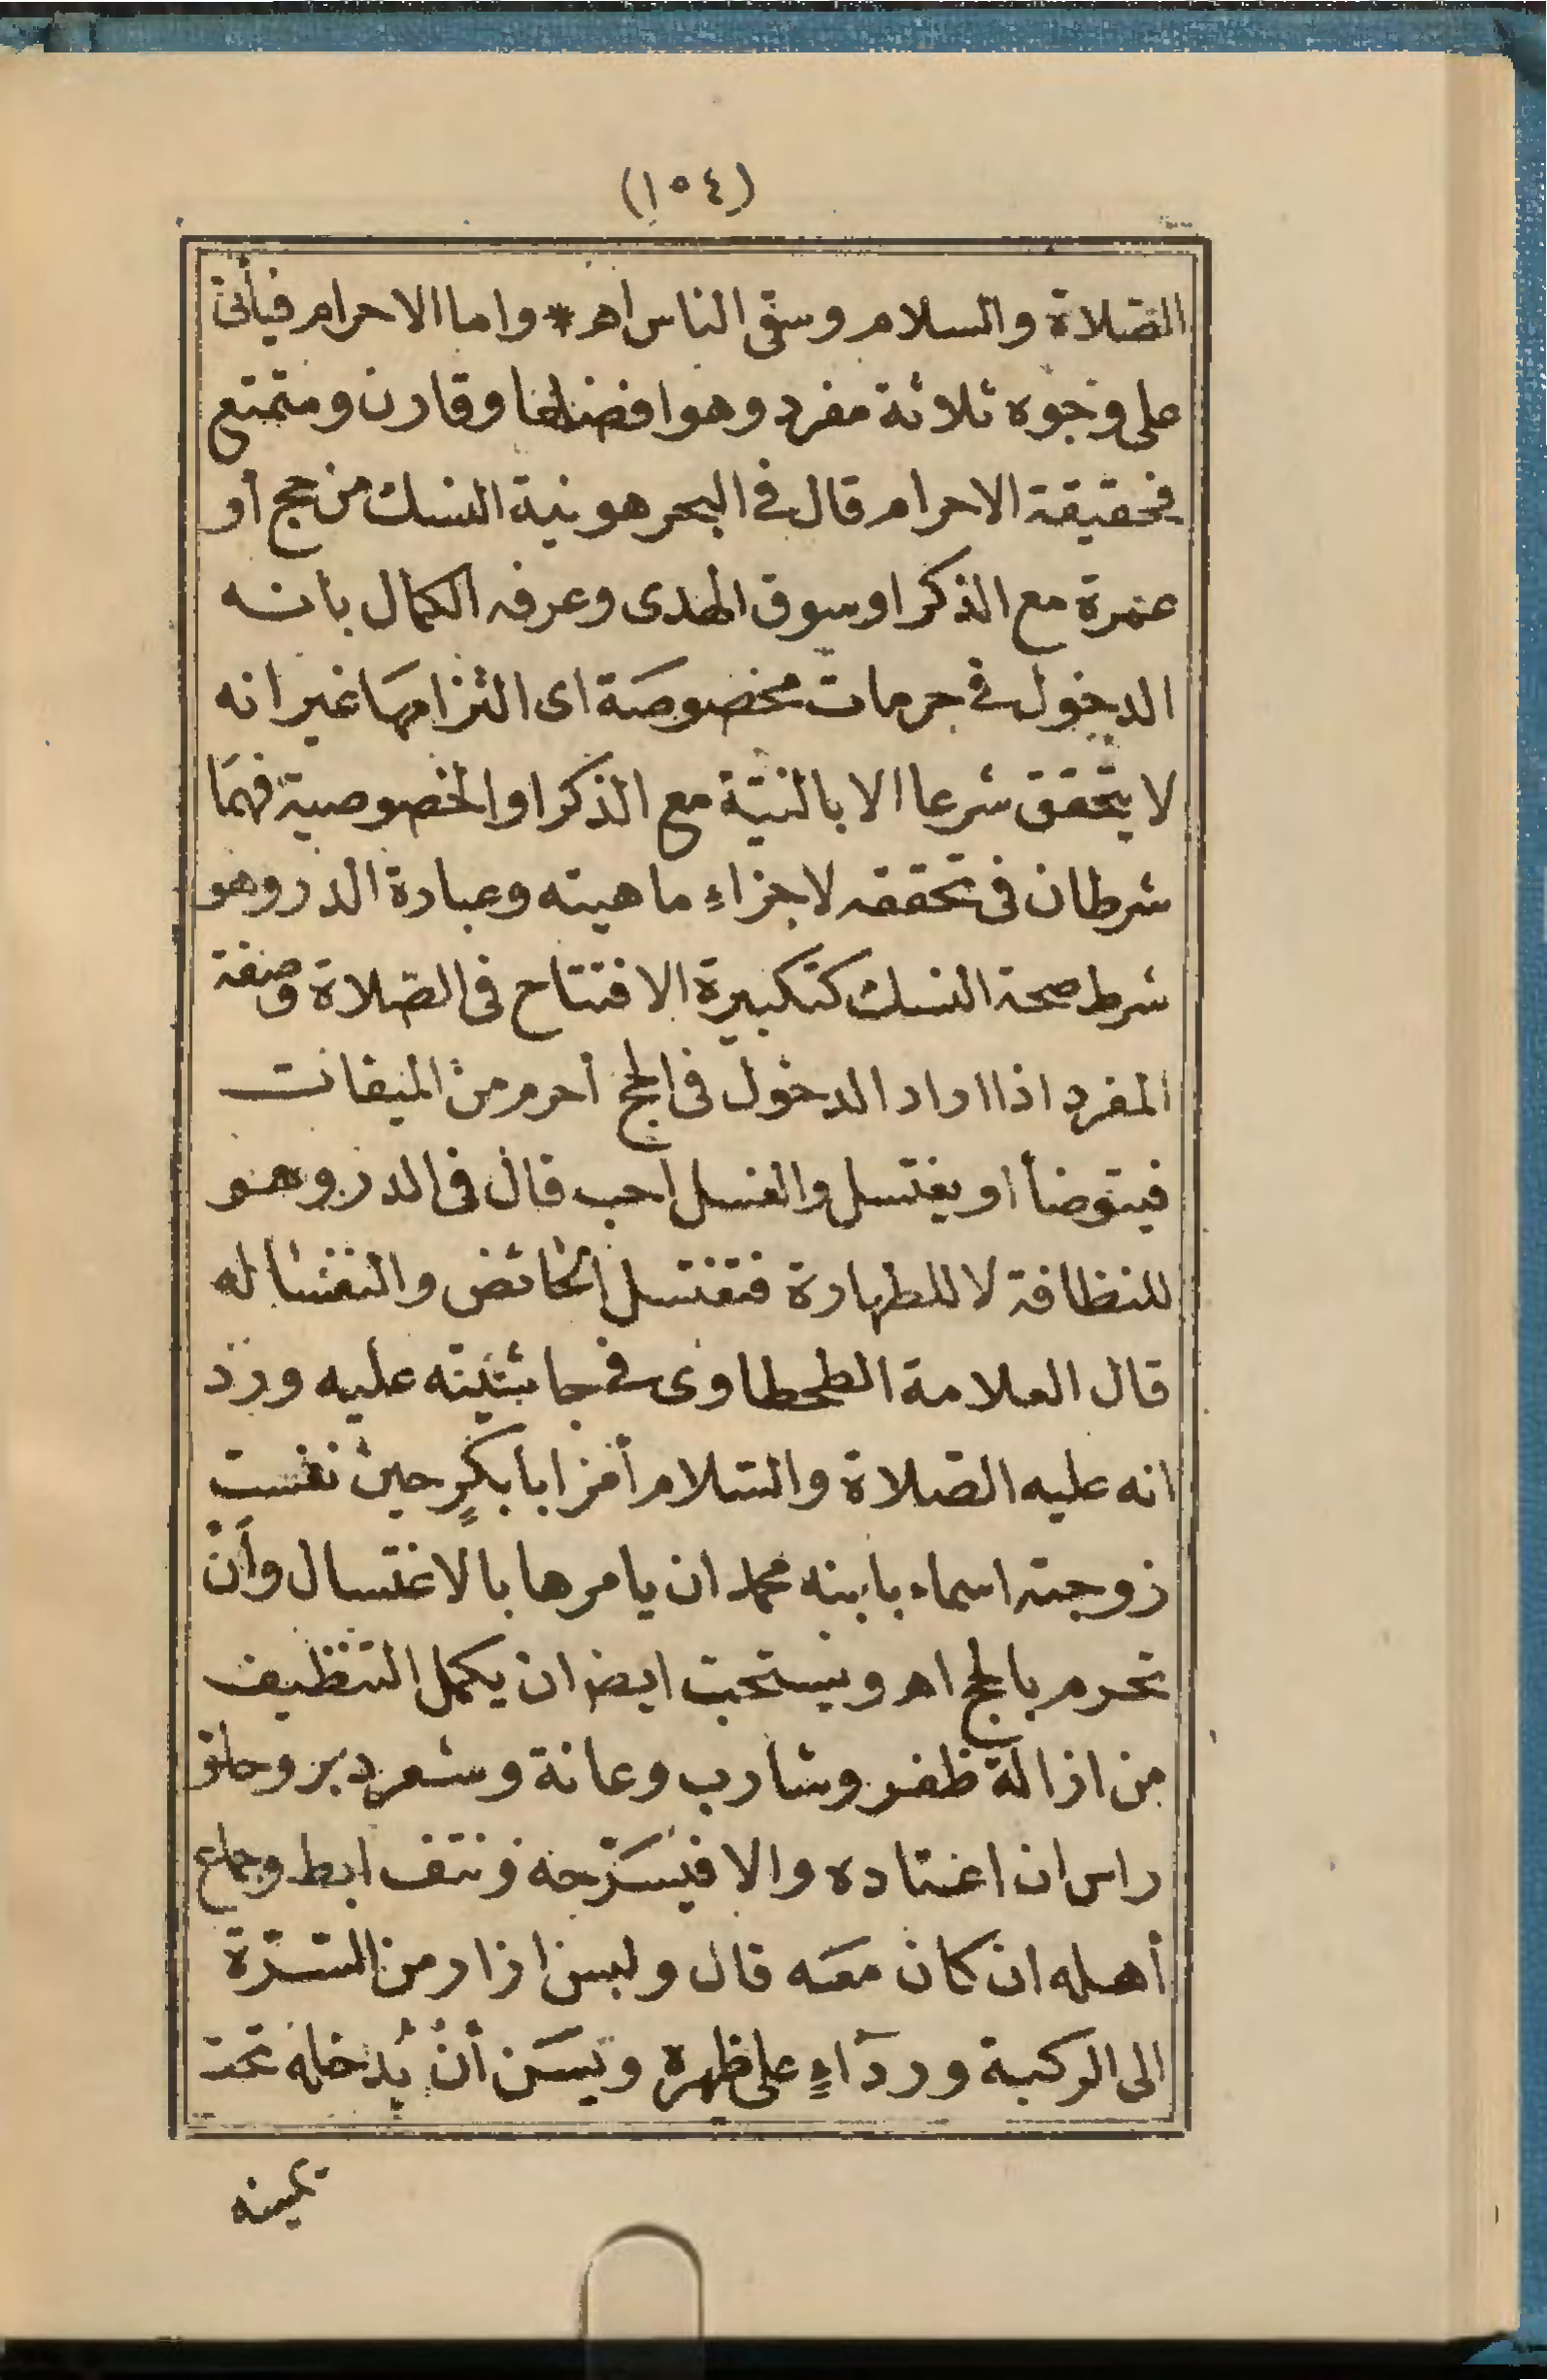 (١٥٤)
الصّلاة والسلام وسقى الناس اهـ * واما الاحرام فيأتى
على وجوه ثلاثة مفرد وهو افضلها وقارن ومتمتع
فحقيقة الاحرام قال فى البحر هو نية النسك من حج أو
عمرة مع الذكر او سوق الهدى وعرفه الكمال بانه
الدخول فى حرمات مخصوصة اى التزامها غير انه
لا يتحقق شرعا الا بالنيّة مع الذكر او الخصوصية فهما
شرطان فى تحققه لاجزاء ماهيته وعبارة الدر وهو
شرط صحة النسك كتكبيرة الافتتاح فى الصّلاة وصفة
المفرد اذا اراد الدخول فى الحج أحرم من الميقات
فيتوضأ او يغتسل والغسل احب قال فى الدر وهو
للنظافة لا للطهارة فتغتسل الحائض والنفسا له
قال العلامة الطحطاوى فى حاشيته عليه ورد
انه عليه الصّلاة والسّلام أمر ابا بكرٍ حين نفست
زوجته اسماء بابنه محمد ان يامرها بالاغتسال وأن
تحرم بالحج اهـ ويستحب ايضا ان يكمل التنظيف
من ازالة ظفر وشارب وعانة وشعر دبر وحلق
راس ان اعتاده والا فيسرّحه ونتف ابط وجماع
أهله ان كان معه قال ولبس ازار من السّرّة
الى الركبة وردآءٍ على ظهره ويسن أن يُدخله تحت
يمينه